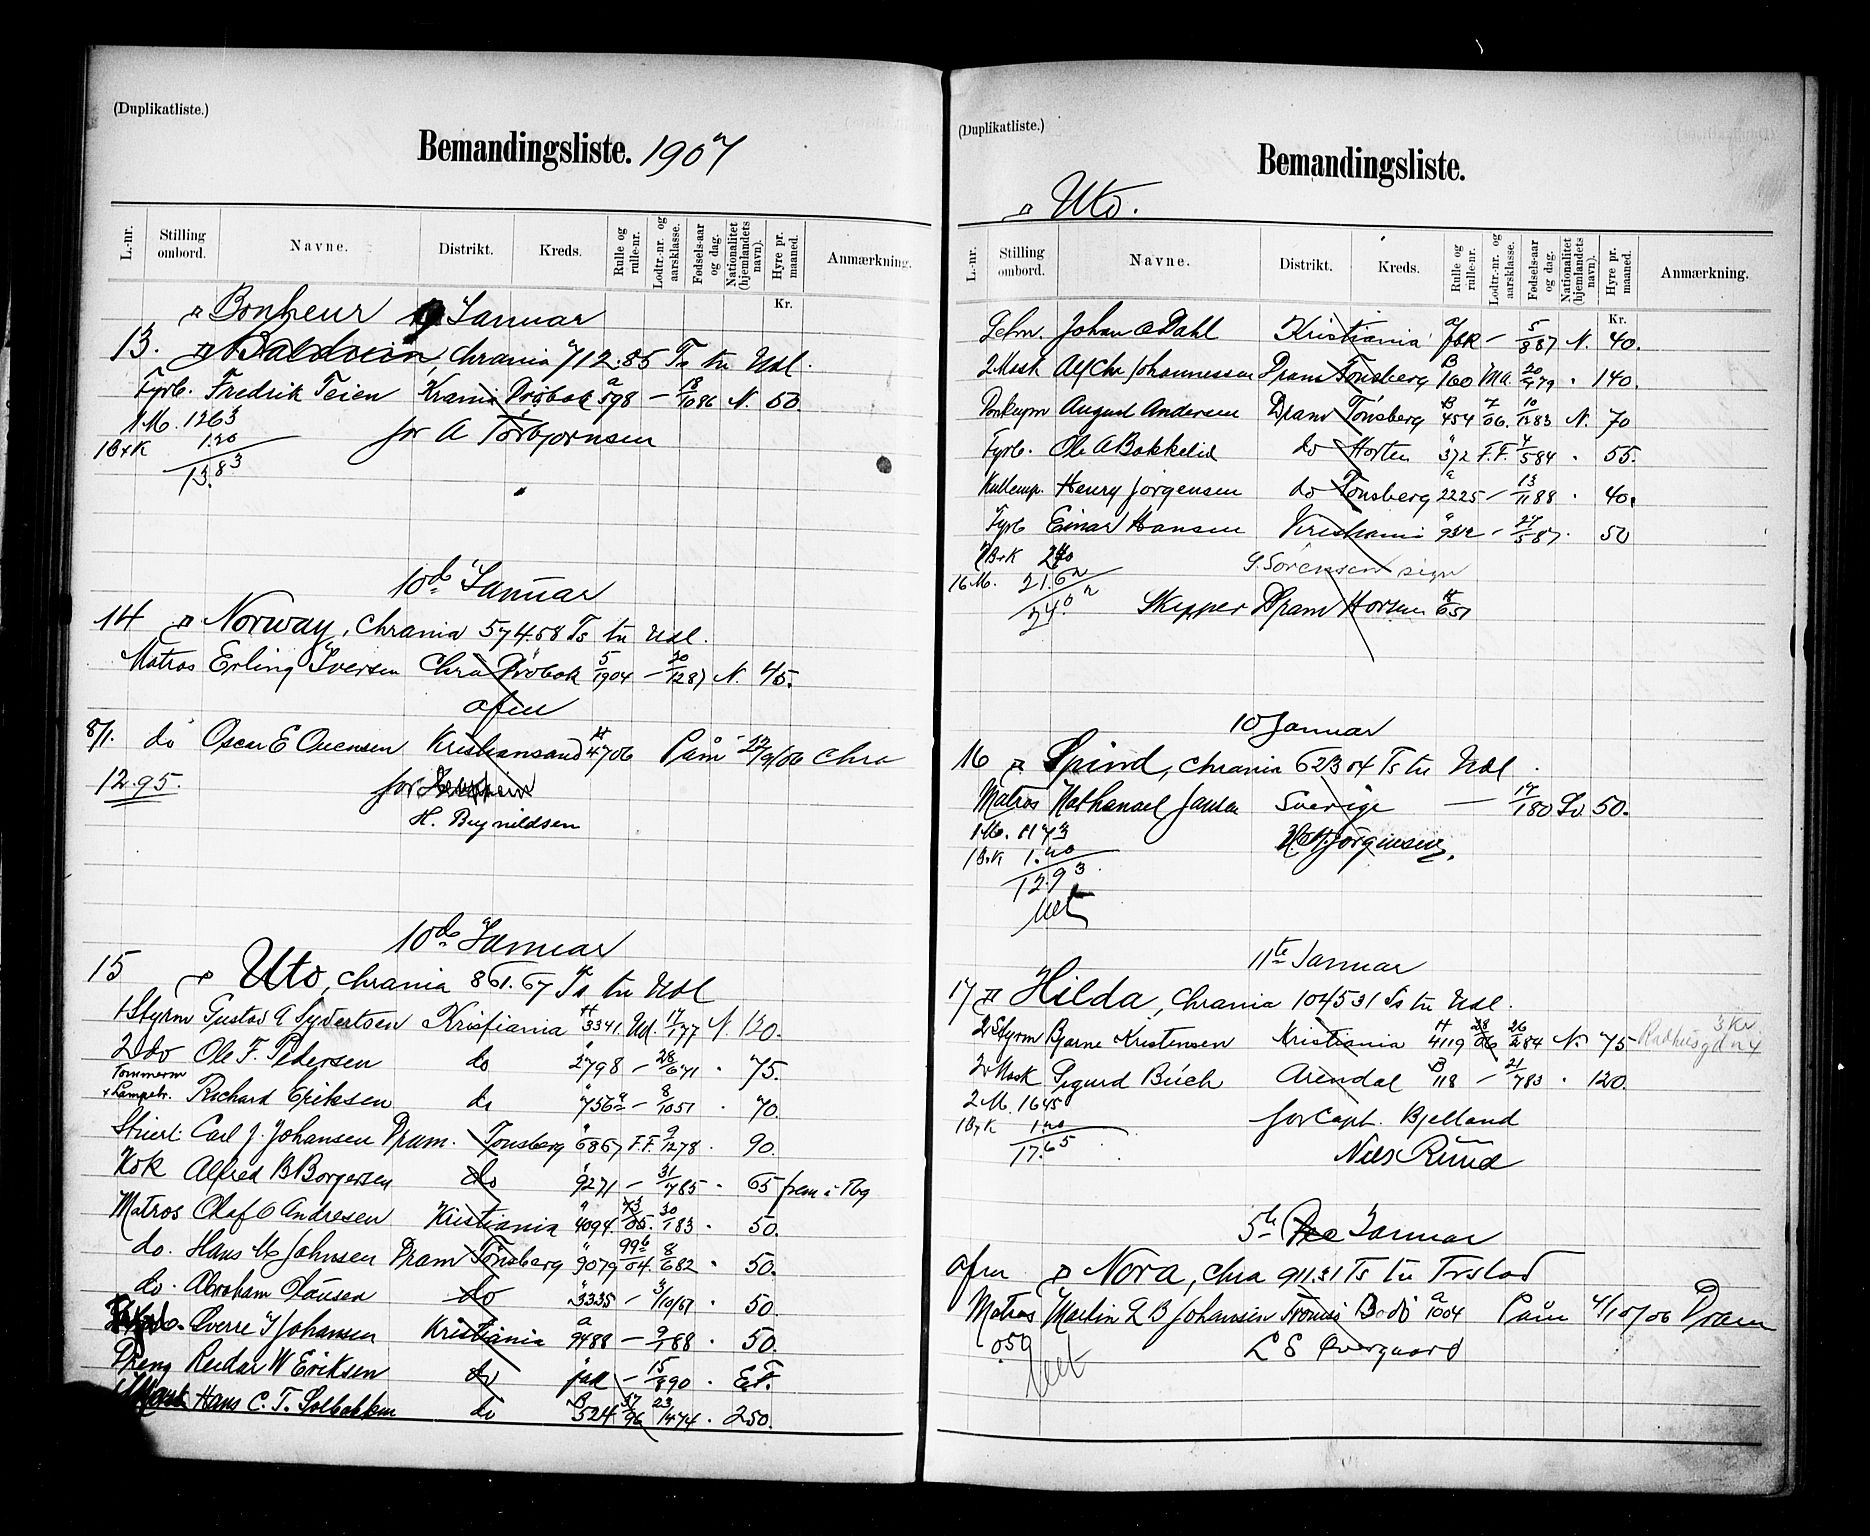 (Duplikatliste.)
Bemandingsliste. 1907
L.-nr. Stilling ombord. Navne. Distrikt. Kreds. Rulle og rulle-nr. Lodtr.-nr. og aarsklasse. Fødsels-aar og dag. Nationalitet (hjemlandets navn). Hyre pr. maaned. Anmærkning.
Kr.
Bonheur 9 Januar
13. Baldwin, Chrania 712.85 Ts tr Udl.
Fyrb. Fredrik Teien Krania Drøbak a 598 – 18/10 86 N. 50
1 M. 1263 for A Torbjornsen
1 B+K 1.20
13.83
10de Januar
14 Norway, Chrania 574.58 Ts tr Udl.
Matros Erling Iversen Chra Drøbak 5/1904 – 20/12 87 N. 45.
afm
8/1. do Oscar E Evensen Kristiansand H 4706 Paam 29/9/06 Chra
12.95. for
H. Buynildsen
10de Januar
15 Uto, Chrania 861.67 Ts tr Udl
1 Styrm Gustav A Sydertsen Kristiania H 3341. Ud. 17/1 77 N. 120.
2 do Ole F. Pedersen do " 2798 – 28/6 71 " 75.
Tommerm + Lampetr. Richard Eriksen do " 756a – 8/10 51 . 70.
Stuert. Carl J. Johansen Dram. Tonsberg " 6867 F.F. 9/12 78 . 90.
Kok Alfred B Borgersen do " 9271 – 31/7 85 . 65 frem i Tbg
Matros Olaf O Andresen Kristiania " 4094 43/05. 30/1 83 . 50.
do. Hans M Johnsen Dram Tönsberg " 9079 996/04. 8/6 82 . 50.
do. Abraham Olausen do " 3335 – 3/10/67 . 50.
Sverre J Johansen Kristiania a 9488 – 9/7 88 . 50.
Dreng Reidar W Eriksen do – 15/8 90 . E.F.
1 Mask Hans C. T. Solbakken do B 524 37/96 23/1 74 . 250.
(Duplikatliste.)
Bemandingsliste.
Uto.
L.-nr. Stilling ombord. Navne. Distrikt. Kreds. Rulle og rulle-nr. Lodtr.-nr. og aarsklasse. Fødsels-aar og dag. Nationalitet (hjemlandets navn). Hyre pr. maaned. Anmærkning.
Kr.
Johan A Dahl Kristiania – 5/8 87 N. 40.
2 Mask Alf Chr Johannessen Dram Tonsberg B 160 Ma. 20/9 79 . 140.
Donkeym August Andersen Dram Tönsberg B 454 7/06. 10/12 83 N. 70
Fyrb. Ole A Bakkelid do Horten " 372 F.F. 4/5 84 . 55.
Kullemp. Henry Jorgensen do Tönsberg a 2225 – 13/11 88 . 40.
Fyrb Einar Hansen Kristiania " 9312 – 27/5 87 . 50
B+K 240 G. Sörensen sign
16 M. 21.62
24.02 Skipper Dram Horten H 651
10 Januar
16 Spind, Chrania 623 04 Ts tr Udl.
Matros Nathanael Jansen Sverige – 17/1 80 Sv. 50.
1 M. 1173 Jörgensen.
1 B+K 1.20
12.93
11te Januar
17 Hilda, Chrania 1045 31 Ts tr Udl.
2 Styrm Bjarne Kristensen Kristiania H 4119 28/06 26/2 84 N. 75 3 Kr. Radhusgd n 4
2 Mask Sigurd Büch Arendal B 118 – 21/7 83 . 120.
2 M. 1645 for Capt. Bjelland
1 B+K 1.20
17.65 Nils Ruud
5te Januar
afm Nora, Chra 911.31 Ts tr Frstad
Matros Martin L B Johansen Tromsö Bodö a 1004 Paam 4/10/06 Dram
050 L E Overgaard